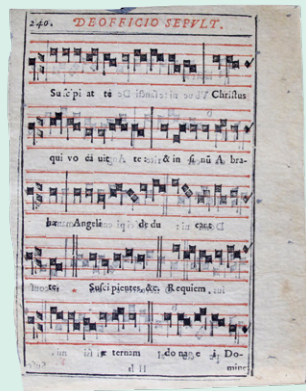 240. DE OFFICIO SEPVLT.
Suscipi at te Christus
qui vo ca uit te: & in si nū A bra-
hæ Angeli de du cant
te. Suscipientes, &c. Requiem
æ ternam do na e i Do-
mine